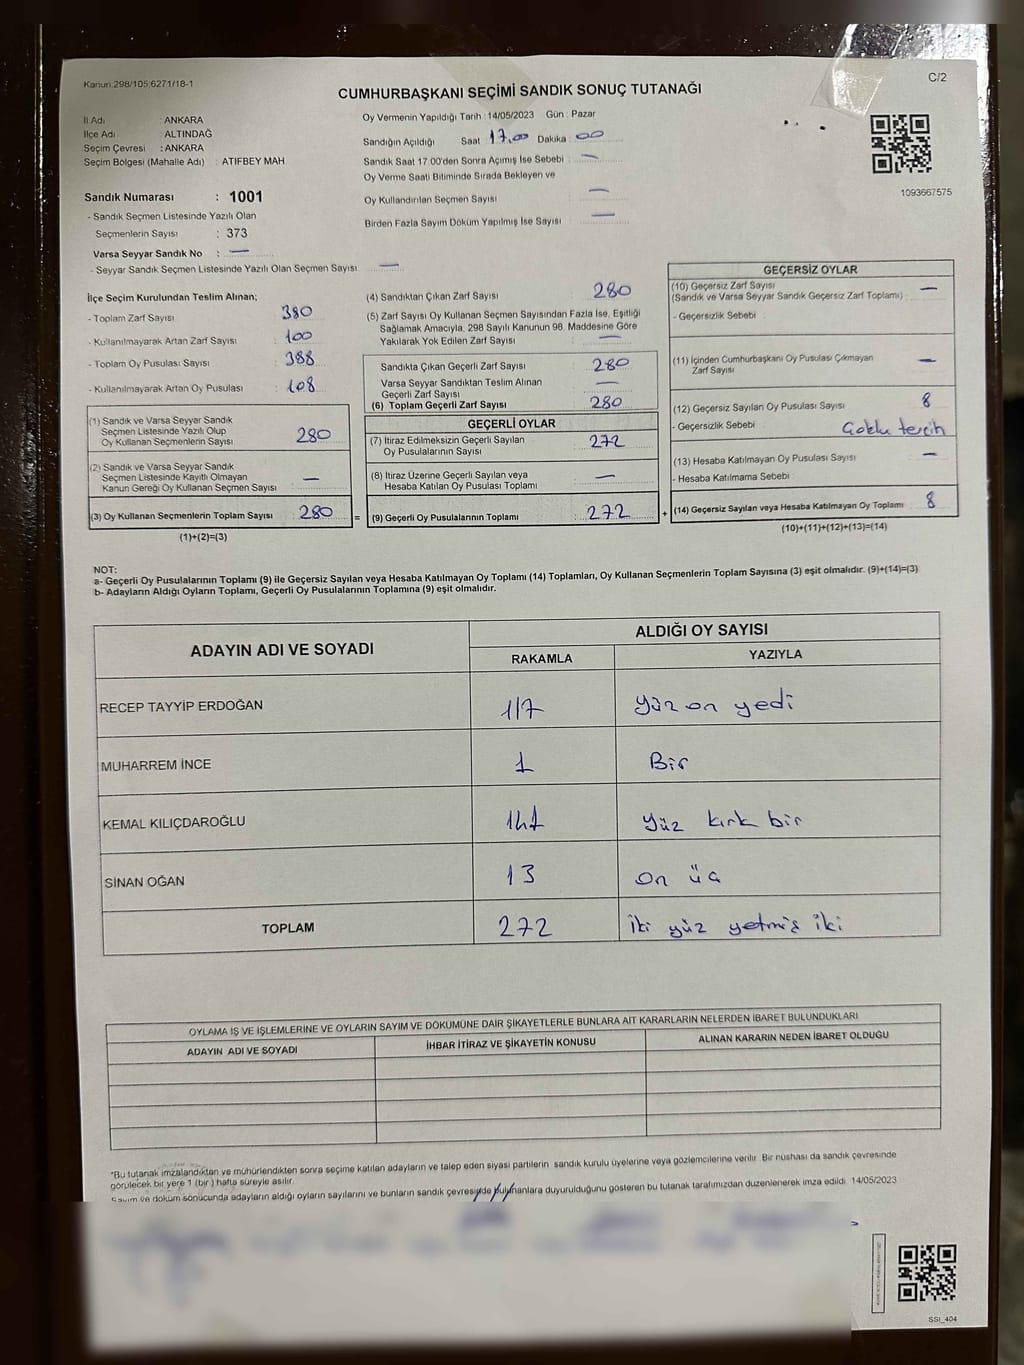 Kanun.298/105,6271/18-1
C/2
CUMHURBAŞKANI SEÇİMİ SANDIK SONUÇ TUTANAĞI
İl Adı : ANKARA
İlçe Adı : ALTINDAĞ
Seçim Çevresi : ANKARA
Seçim Bölgesi (Mahalle Adı) : ATIFBEY MAH
Oy Vermenin Yapıldığı Tarih : 14/05/2023 Gün : Pazar
Sandığın Açıldığı Saat 17.00 Dakika : 00
Sandık Saat 17:00'den Sonra Açılmış İse Sebebi : —
Oy Verme Saati Bitiminde Sırada Bekleyen ve
Oy Kullandırılan Seçmen Sayısı —
Birden Fazla Sayım Döküm Yapılmış İse Sayısı —
1093667575
Sandık Numarası : 1001
- Sandık Seçmen Listesinde Yazılı Olan
Seçmenlerin Sayısı : 373
Varsa Seyyar Sandık No : —
- Seyyar Sandık Seçmen Listesinde Yazılı Olan Seçmen Sayısı —
İlçe Seçim Kurulundan Teslim Alınan;
- Toplam Zarf Sayısı : 380
- Kullanılmayarak Artan Zarf Sayısı : 100
- Toplam Oy Pusulası Sayısı : 388
- Kullanılmayarak Artan Oy Pusulası : 108
(1) Sandık ve Varsa Seyyar Sandık
Seçmen Listesinde Yazılı Olup
Oy Kullanan Seçmenlerin Sayısı 280
(2) Sandık ve Varsa Seyyar Sandık
Seçmen Listesinde Kayıtlı Olmayan
Kanun Gereği Oy Kullanan Seçmen Sayısı —
(3) Oy Kullanan Seçmenlerin Toplam Sayısı : 280
(1)+(2)=(3)
(4) Sandıktan Çıkan Zarf Sayısı 280
(5) Zarf Sayısı Oy Kullanan Seçmen Sayısından Fazla İse, Eşitliği
Sağlamak Amacıyla, 298 Sayılı Kanunun 98. Maddesine Göre
Yakılarak Yok Edilen Zarf Sayısı : —
Sandıkta Çıkan Geçerli Zarf Sayısı : 280
Varsa Seyyar Sandıktan Teslim Alınan
Geçerli Zarf Sayısı —
(6) Toplam Geçerli Zarf Sayısı : 280
GEÇERLİ OYLAR
(7) İtiraz Edilmeksizin Geçerli Sayılan
Oy Pusulalarının Sayısı : 272
(8) İtiraz Üzerine Geçerli Sayılan veya
Hesaba Katılan Oy Pusulası Toplamı : —
= (9) Geçerli Oy Pusulalarının Toplamı : 272
GEÇERSİZ OYLAR
(10) Geçersiz Zarf Sayısı
(Sandık ve Varsa Seyyar Sandık Geçersiz Zarf Toplamı) : —
- Geçersizlik Sebebi :
(11) İçinden Cumhurbaşkanı Oy Pusulası Çıkmayan
Zarf Sayısı : —
(12) Geçersiz Sayılan Oy Pusulası Sayısı : 8
- Geçersizlik Sebebi : Çoklu tercih
(13) Hesaba Katılmayan Oy Pusulası Sayısı : —
- Hesaba Katılmama Sebebi :
+ (14) Geçersiz Sayılan veya Hesaba Katılmayan Oy Toplamı : 8
(10)+(11)+(12)+(13)=(14)
NOT:
a- Geçerli Oy Pusulalarının Toplamı (9) ile Geçersiz Sayılan veya Hesaba Katılmayan Oy Toplamı (14) Toplamları, Oy Kullanan Seçmenlerin Toplam Sayısına (3) eşit olmalıdır. (9)+(14)=(3)
b- Adayların Aldığı Oyların Toplamı, Geçerli Oy Pusulalarının Toplamına (9) eşit olmalıdır.
ADAYIN ADI VE SOYADI ALDIĞI OY SAYISI
RAKAMLA YAZIYLA
RECEP TAYYİP ERDOĞAN 117 yüz on yedi
MUHARREM İNCE 1 Bir
KEMAL KILIÇDAROĞLU 141 yüz kırk bir
SİNAN OĞAN 13 on üç
TOPLAM 272 iki yüz yetmiş iki
OYLAMA İŞ VE İŞLEMLERİNE VE OYLARIN SAYIM VE DÖKÜMÜNE DAİR ŞİKAYETLERLE BUNLARA AİT KARARLARIN NELERDEN İBARET BULUNDUKLARI
ADAYIN ADI VE SOYADI İHBAR İTİRAZ VE ŞİKAYETİN KONUSU ALINAN KARARIN NEDEN İBARET OLDUĞU
*Bu tutanak imzalandıktan ve mühürlendikten sonra seçime katılan adayların ve talep eden siyasi partilerin sandık kurulu üyelerine veya gözlemcilerine verilir. Bir nüshası da sandık çevresinde
görülecek bir yere 1 (bir) hafta süreyle asılır.
Sayım ve döküm sonucunda adayların aldığı oyların sayılarını ve bunların sandık çevresinde bulunanlara duyurulduğunu gösteren bu tutanak tarafımızdan düzenlenerek imza edildi. 14/05/2023
SSI_404